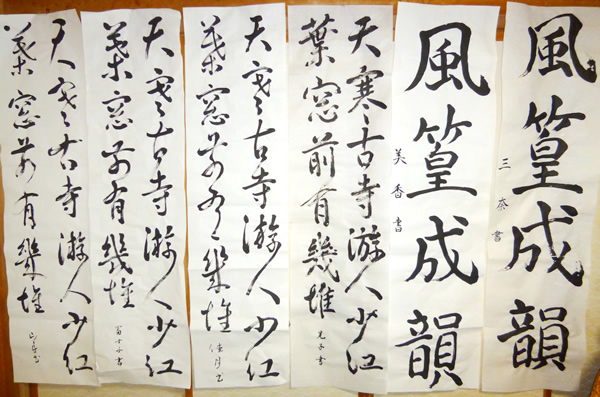 風篁成韻
三奈書
風篁成韻
美香書
天寒古寺游人少紅
葉窓前有幾堆
天寒古寺游人少紅
葉窓前有幾堆
天寒古寺游人少紅
葉窓前有幾堆
天寒古寺游人少紅
葉窓前有幾堆